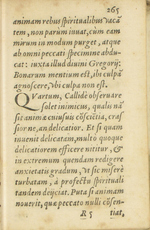 265
animam rebus spiritualibus vacã
tem, non parum iuuat, cum eam
mirum in modum purget, atque
ab omni peccati specimine abdu-
cat: iuxta illud diuui Gregorij:
Bonarum mentium est, ibi culpã
agnoscere, vbi culpa non est.
QVartum, Callidè obseruare
solet inimicus, qualis nã
sit animæ cuiusuis cõsciẽtia, craf
sior ne, an delicatior. Et si quam
inuenit delicatam, multo quoque
delicatiorem efficere nititur, &
in extremum quendam redigere
anxietatis gradum, vt sic miserè
turbatam, à profectu spirituali
tandem deijciat. Puta si animam
nouerit, quæ peccato nulli cõsen-
R 5 tiat,